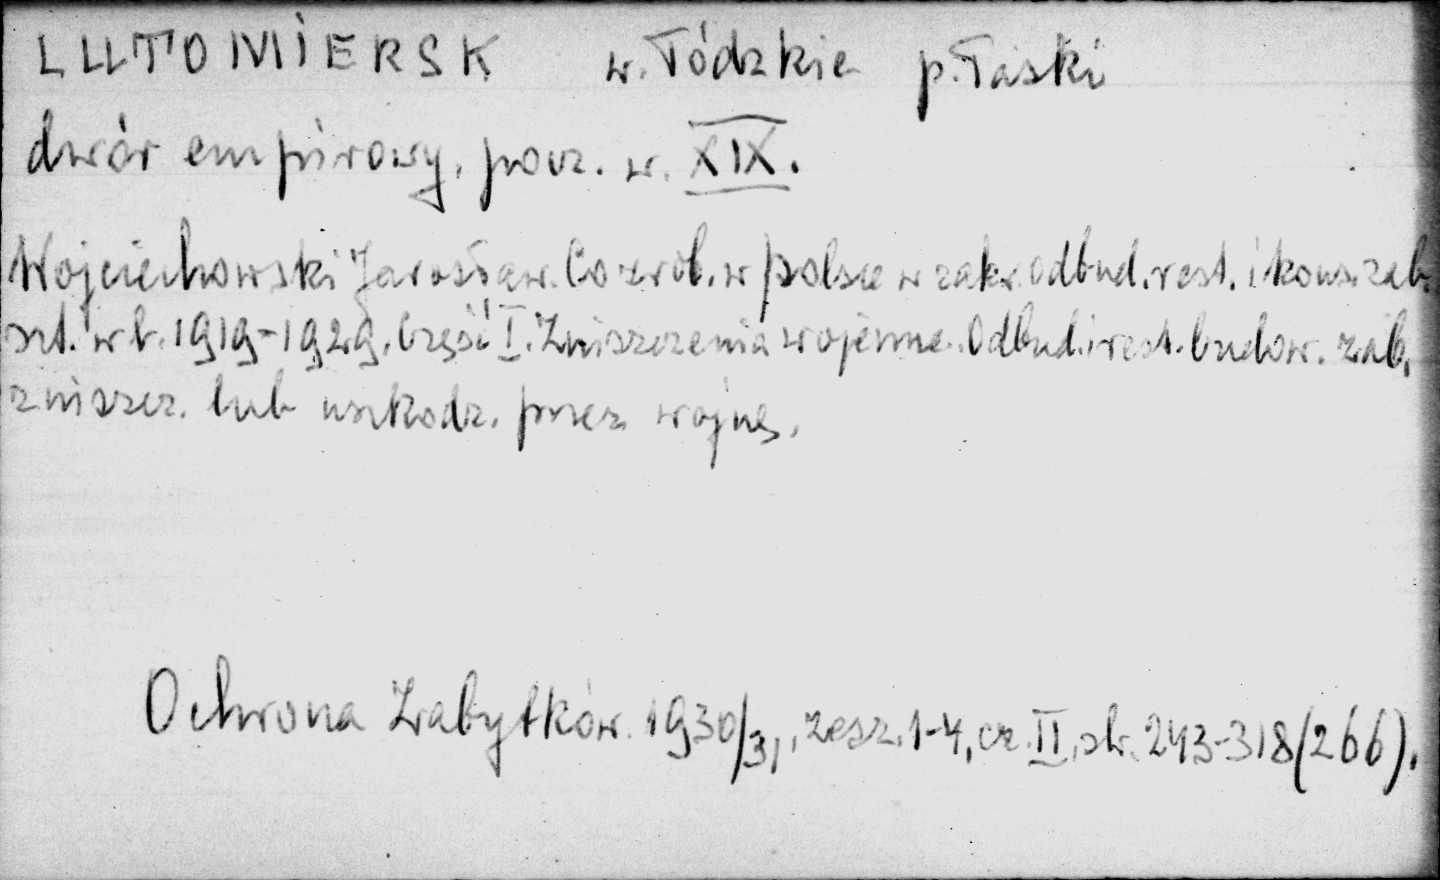 LUTOMIERSK w. Łódzkie p. Łaski
dwór empirowy, pocz. w. XIX.
Wojciechowski Jarosław. Co zrob. w Polsce w zakr. odbud. rest. i kons. zab.
szt. w l. 1919-1929. Część I. Zniszczenia wojenne. Odbud. i rest. budow. zab.
zniszcz. lub uszkodz. przez wojnę.
Ochrona Zabytków. 1930/31, zesz. 1-4, cz. II, str. 243-318 (266).